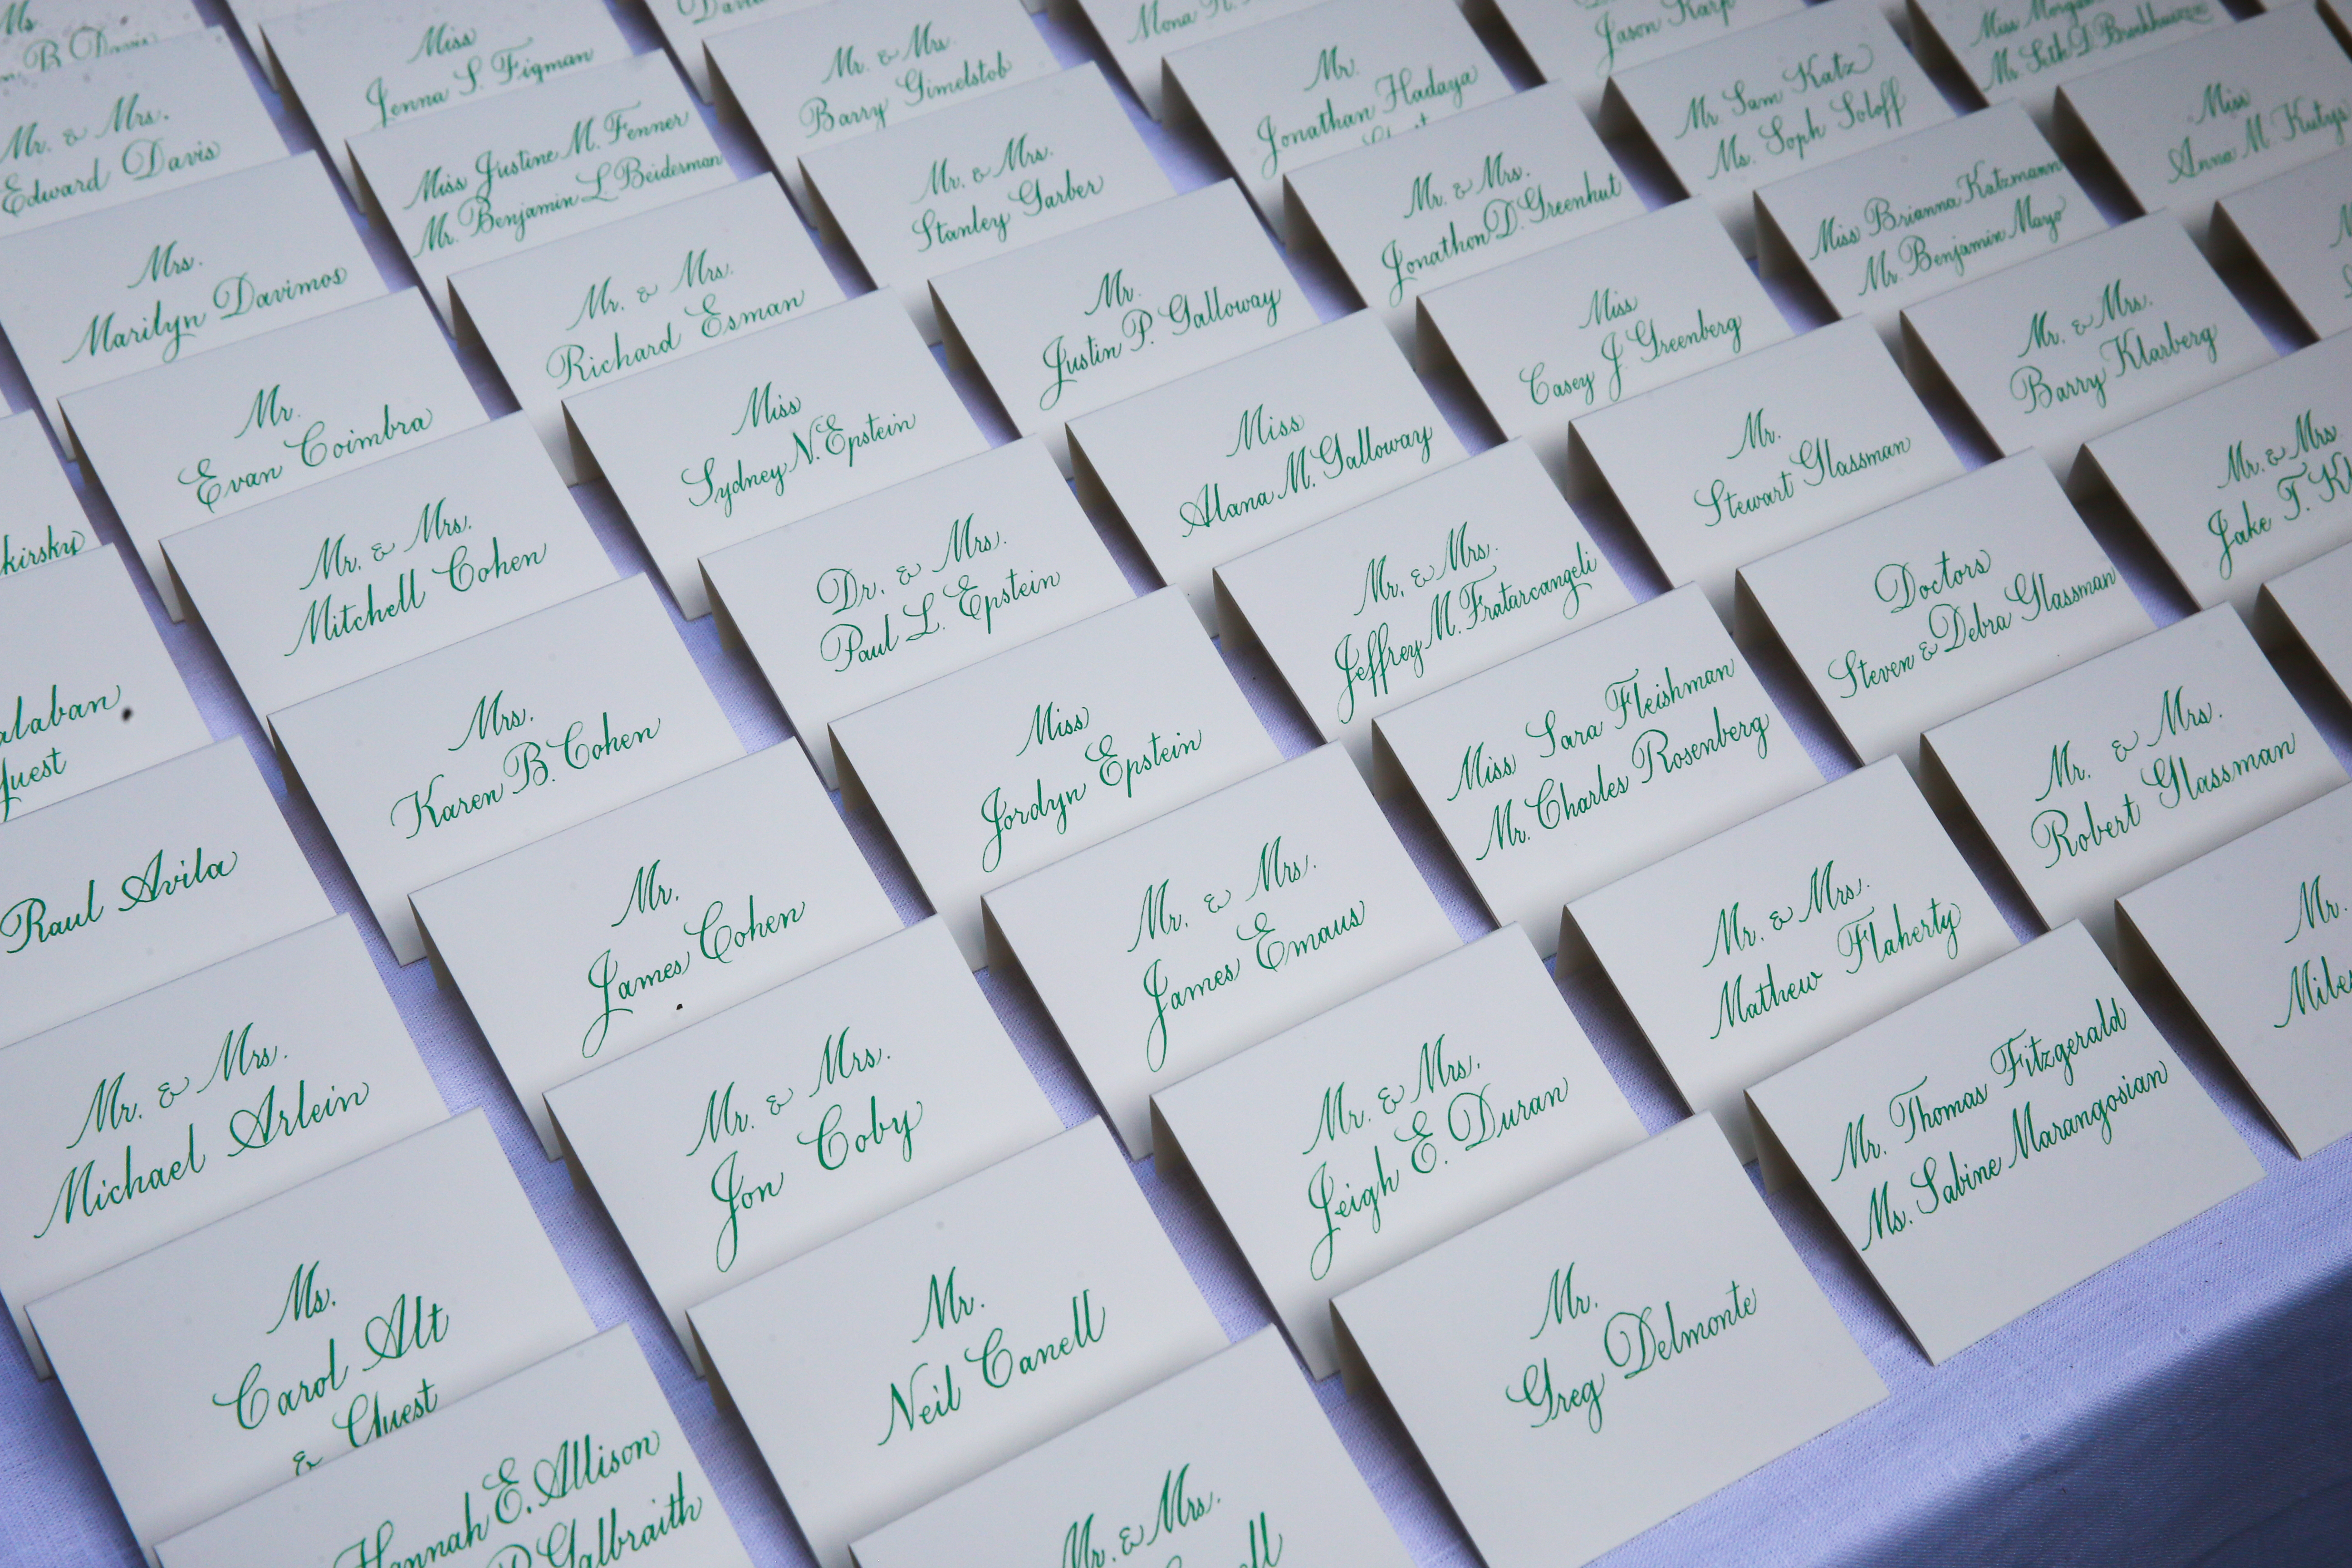 Ms.
B. Davis
Mr. & Mrs.
Edward Davis
Mrs.
Marilyn Davimos
Mr.
Evan Coimbra
Mr. & Mrs.
Mitchell Cohen
Mrs.
Karen B. Cohen
Mr.
James Cohen
Mr. & Mrs.
Jon Coby
Mr.
Neil Canell
Mr. & Mrs.
Raul Avila
Mr. & Mrs.
Michael Arlein
Ms.
Carol Alt
& Guest
Hannah E. Allison
Galbraith
Miss
Jenna S. Figman
Miss Justine M. Fenner
Mr. Benjamin L. Beidesman
Mr. & Mrs.
Richard Esman
Miss
Sydney N. Epstein
Dr. & Mrs.
Paul L. Epstein
Miss
Jordyn Epstein
Mr. & Mrs.
James Emaus
Mr. & Mrs.
Leigh E. Duran
Mr.
Greg Delmonte
Mr. & Mrs.
Barry Gimelstob
Mr. & Mrs.
Stanley Garber
Mr.
Justin P. Galloway
Miss
Alana M. Galloway
Mr. & Mrs.
Jeffrey M. Fratarcangeli
Miss Sara Fleishman
Mr. Charles Rosenberg
Mr. & Mrs.
Mathew Flaherty
Mr. Thomas Fitzgerald
Ms. Sabine Marangosian
Mona
Mr.
Jonathan Hadaya
Mr. & Mrs.
Jonathon D. Greenhut
Miss
Casey J. Greenberg
Mr.
Stewart Glassman
Doctors
Steven & Debra Glassman
Mr. & Mrs.
Robert Glassman
Mr.
Jason Karp
Mr. Sam Katz
Ms. Soph Soloff
Miss Brianna Katzmann
Mr. Benjamin Mayo
Mr. & Mrs.
Barry Klarberg
Mr. & Mrs
Jake T.
Miss
Mr. Seth D.
Miss
Anna M.